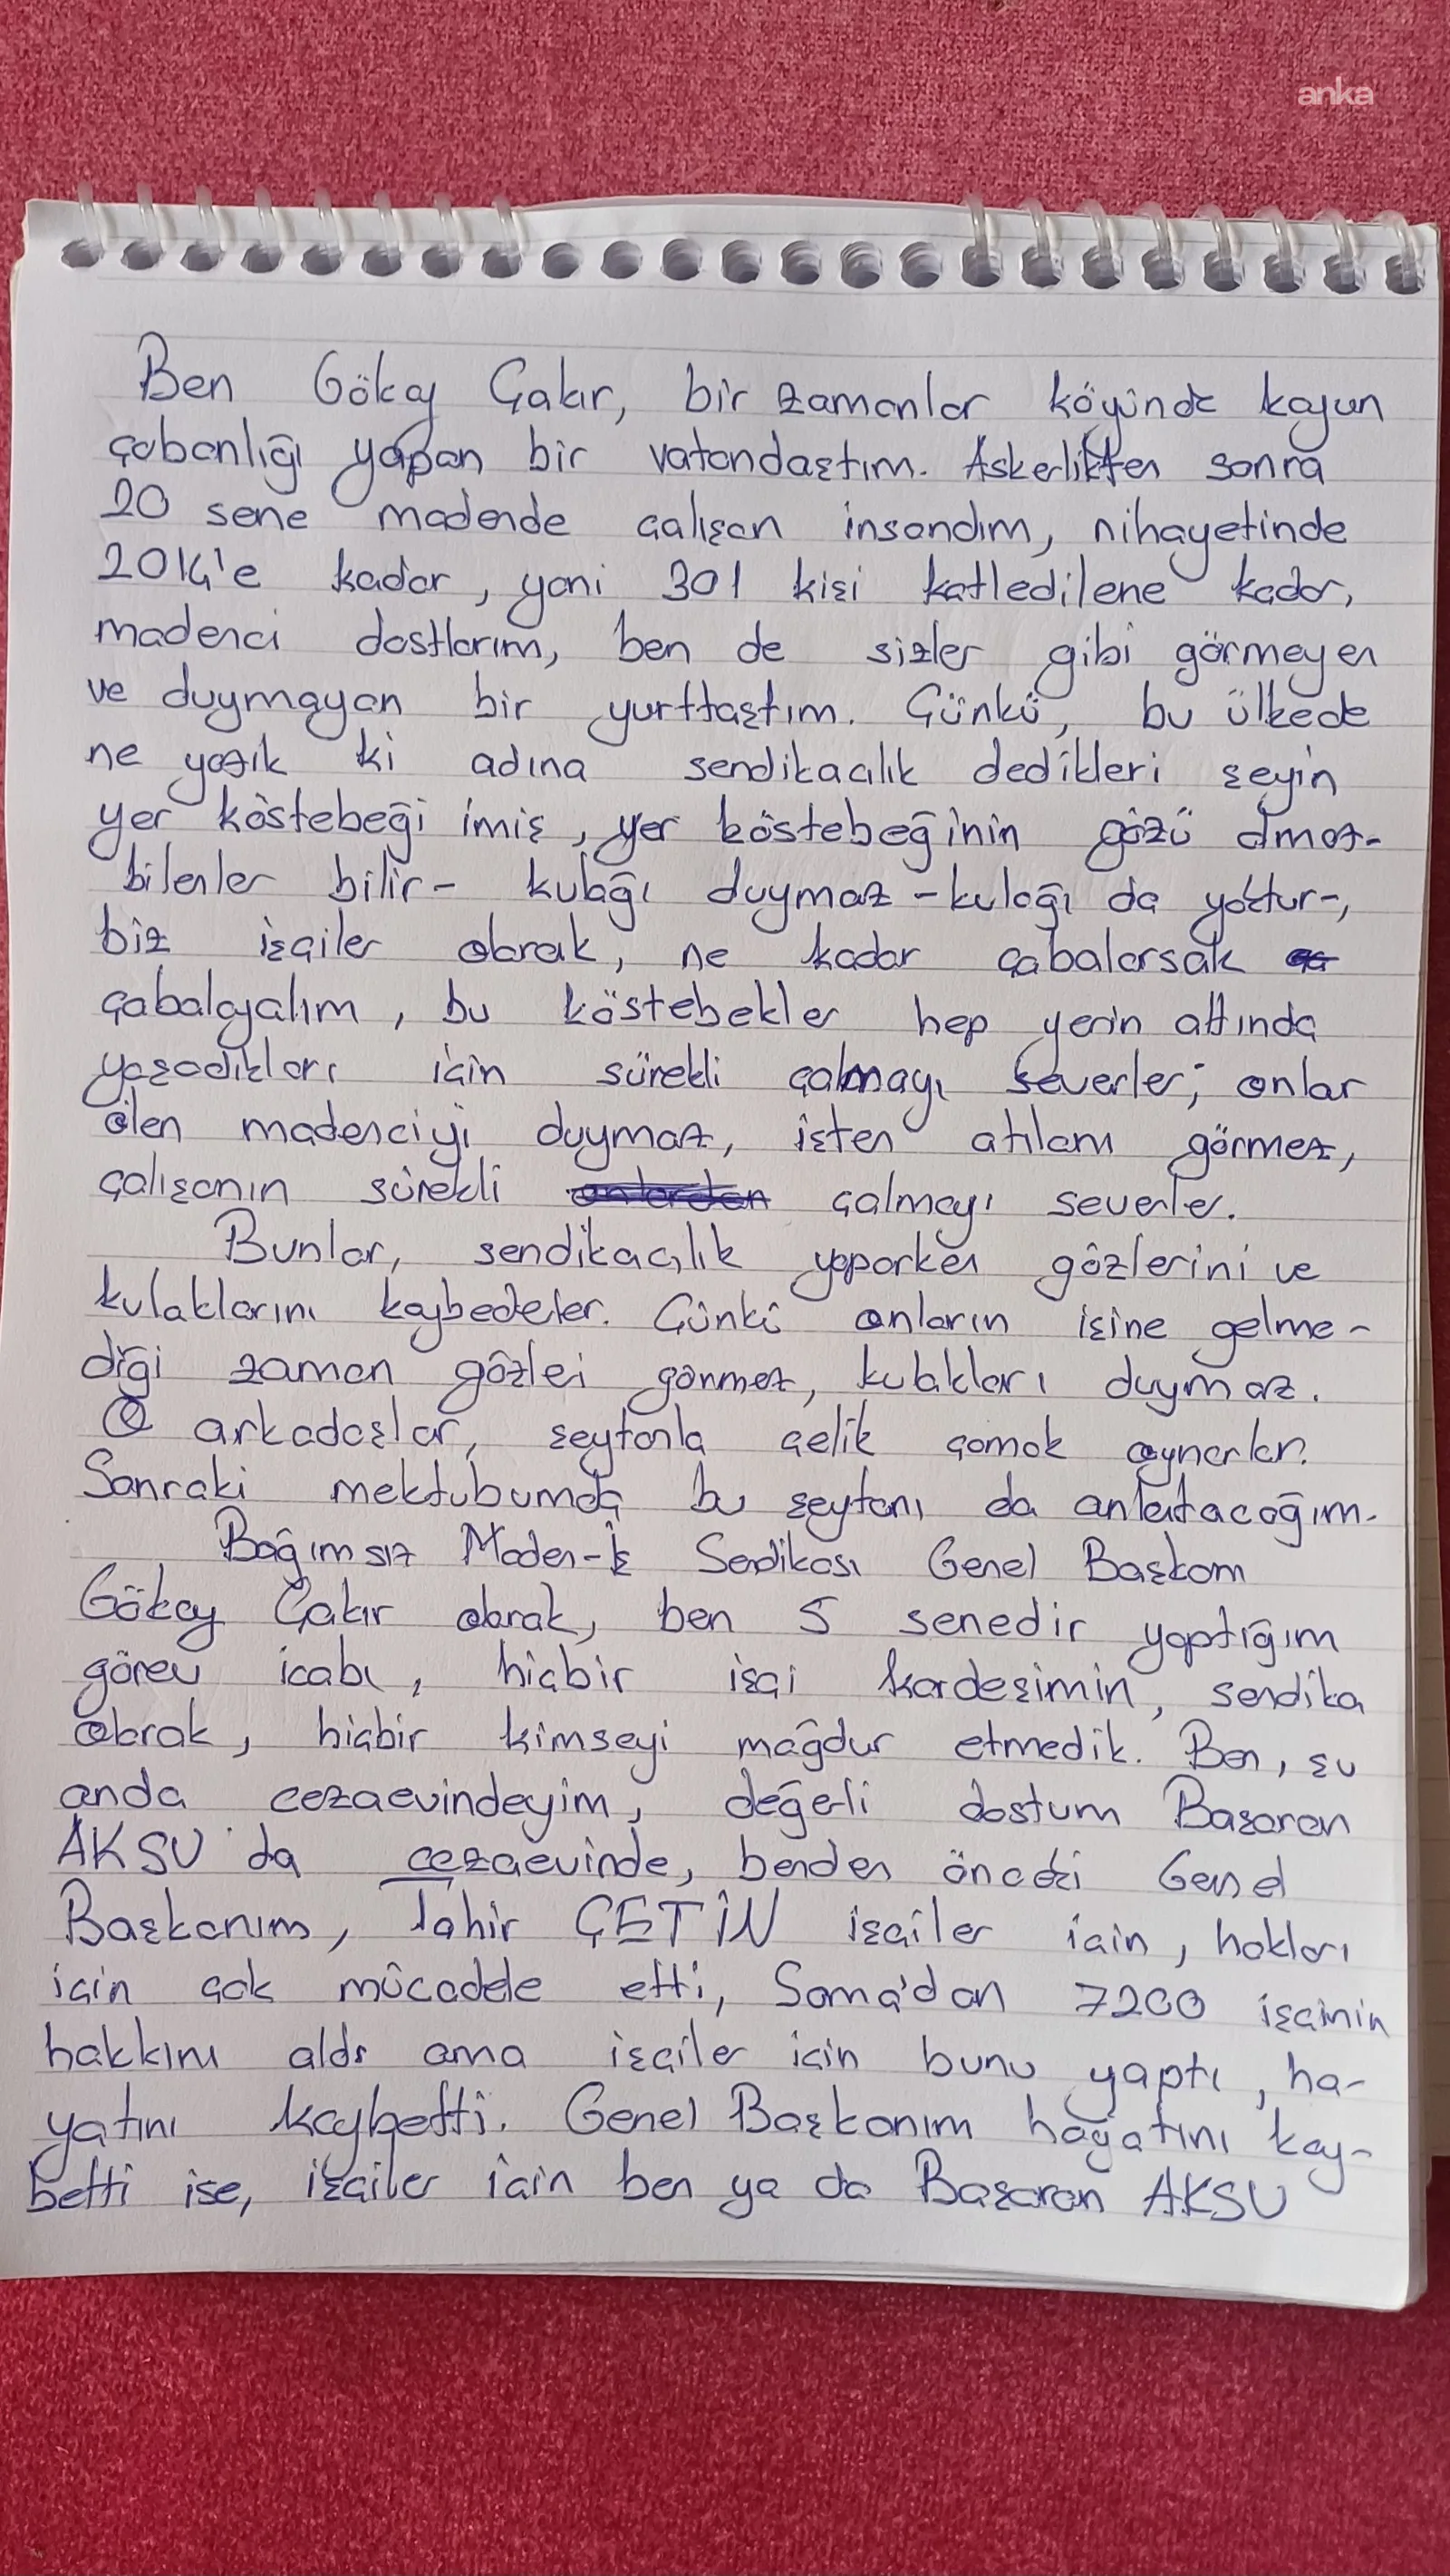 anka
Ben Gökay Çakır, bir zamanlar köyünde koyun
çobanlığı yapan bir vatandaştım. Askerlikten sonra
20 sene madende çalışan insandım, nihayetinde
2014'e kadar, yani 301 kişi katledilene kadar,
madenci dostlarım, ben de sizler gibi görmeyen
ve duymayan bir yurttaştım. Çünkü, bu ülkede
ne yazık ki adına sendikacılık dedikleri şeyin
yer köstebeği imiş, yer köstebeğinin gözü olmaz-
bilenler bilir- kulağı duymaz -kulağı da yoktur-,
biz işçiler olarak, ne kadar çabalarsak
çabalayalım, bu köstebekler hep yerin altında
yaşadıkları için sürekli çalmayı severler; onlar
ölen madenciyi duymaz, işten atılanı görmez,
çalışanın sürekli çalmayı severler.
Bunlar, sendikacılık yaparken gözlerini ve
kulaklarını kaybederler. Çünkü onların işine gelme-
diği zaman gözleri görmez, kulakları duymaz.
O arkadaşlar, şeytanla çelik çomak oynarlar.
Sonraki mektubumda bu şeytanı da anlatacağım.
Bağımsız Maden-İş Sendikası Genel Başkanı
Gökay Çakır olarak, ben 5 senedir yaptığım
görev icabı, hiçbir işçi kardeşimin, sendika
olarak, hiçbir kimseyi mağdur etmedik. Ben, şu
anda cezaevindeyim, değerli dostum Başaran
AKSU da cezaevinde, benden önceki Genel
Başkanım, Tahir ÇETİN işçiler için, hakları
için çok mücadele etti, Soma'dan 7200 işçinin
hakkını aldı ama işçiler için bunu yaptı, ha-
yatını kaybetti. Genel Başkanım hayatını kay-
betti ise, işçiler için ben ya da Başaran AKSU